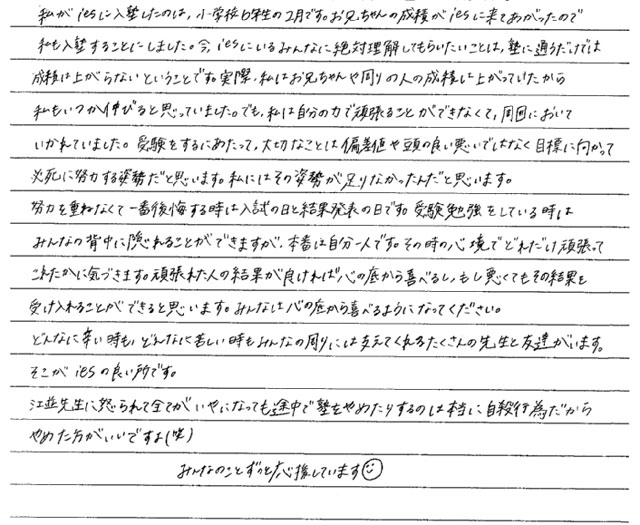 私がiesに入塾したのは、小学校6年生の2月です。お兄ちゃんの成績がiesに来てあがったので
私も入塾することにしました。今、iesにいるみんなに絶対理解してもらいたいことは、塾に通うだけでは
成績は上がらないということです。実際、私はお兄ちゃんや周りの人の成績は上がっていたから
私もいつか伸びると思っていました。でも、私は自分の力で頑張ることができなくて、周囲において
いかれていました。受験をするにあたって、大切なことは偏差値や頭の良い悪いではなく目標に向かって
必死に努力する姿勢だと思います。私にはその姿勢が足りなかったんだと思います。
努力を重ねなくて一番後悔する時は入試の日と結果発表の日です。受験勉強をしている時は
みんなの背中に隠れることができますが、本番は自分一人です。その時の心境でどれだけ頑張って
これたかに気づきます。頑張れた人の結果が良ければ心の底から喜べるし、もし悪くてもその結果を
受け入れることができると思います。みんなは心の底から喜べるようになってください。
どんなに辛い時も、どんなに苦しい時もみんなの周りには支えてくれるたくさんの先生と友達がいます。
そこがiesの良い所です。
江並先生に怒られて全てがいやになっても途中で塾をやめたりするのは本当に自殺行為だから
やめた方がいいですよ(笑)
みんなのことずっと応援しています☺